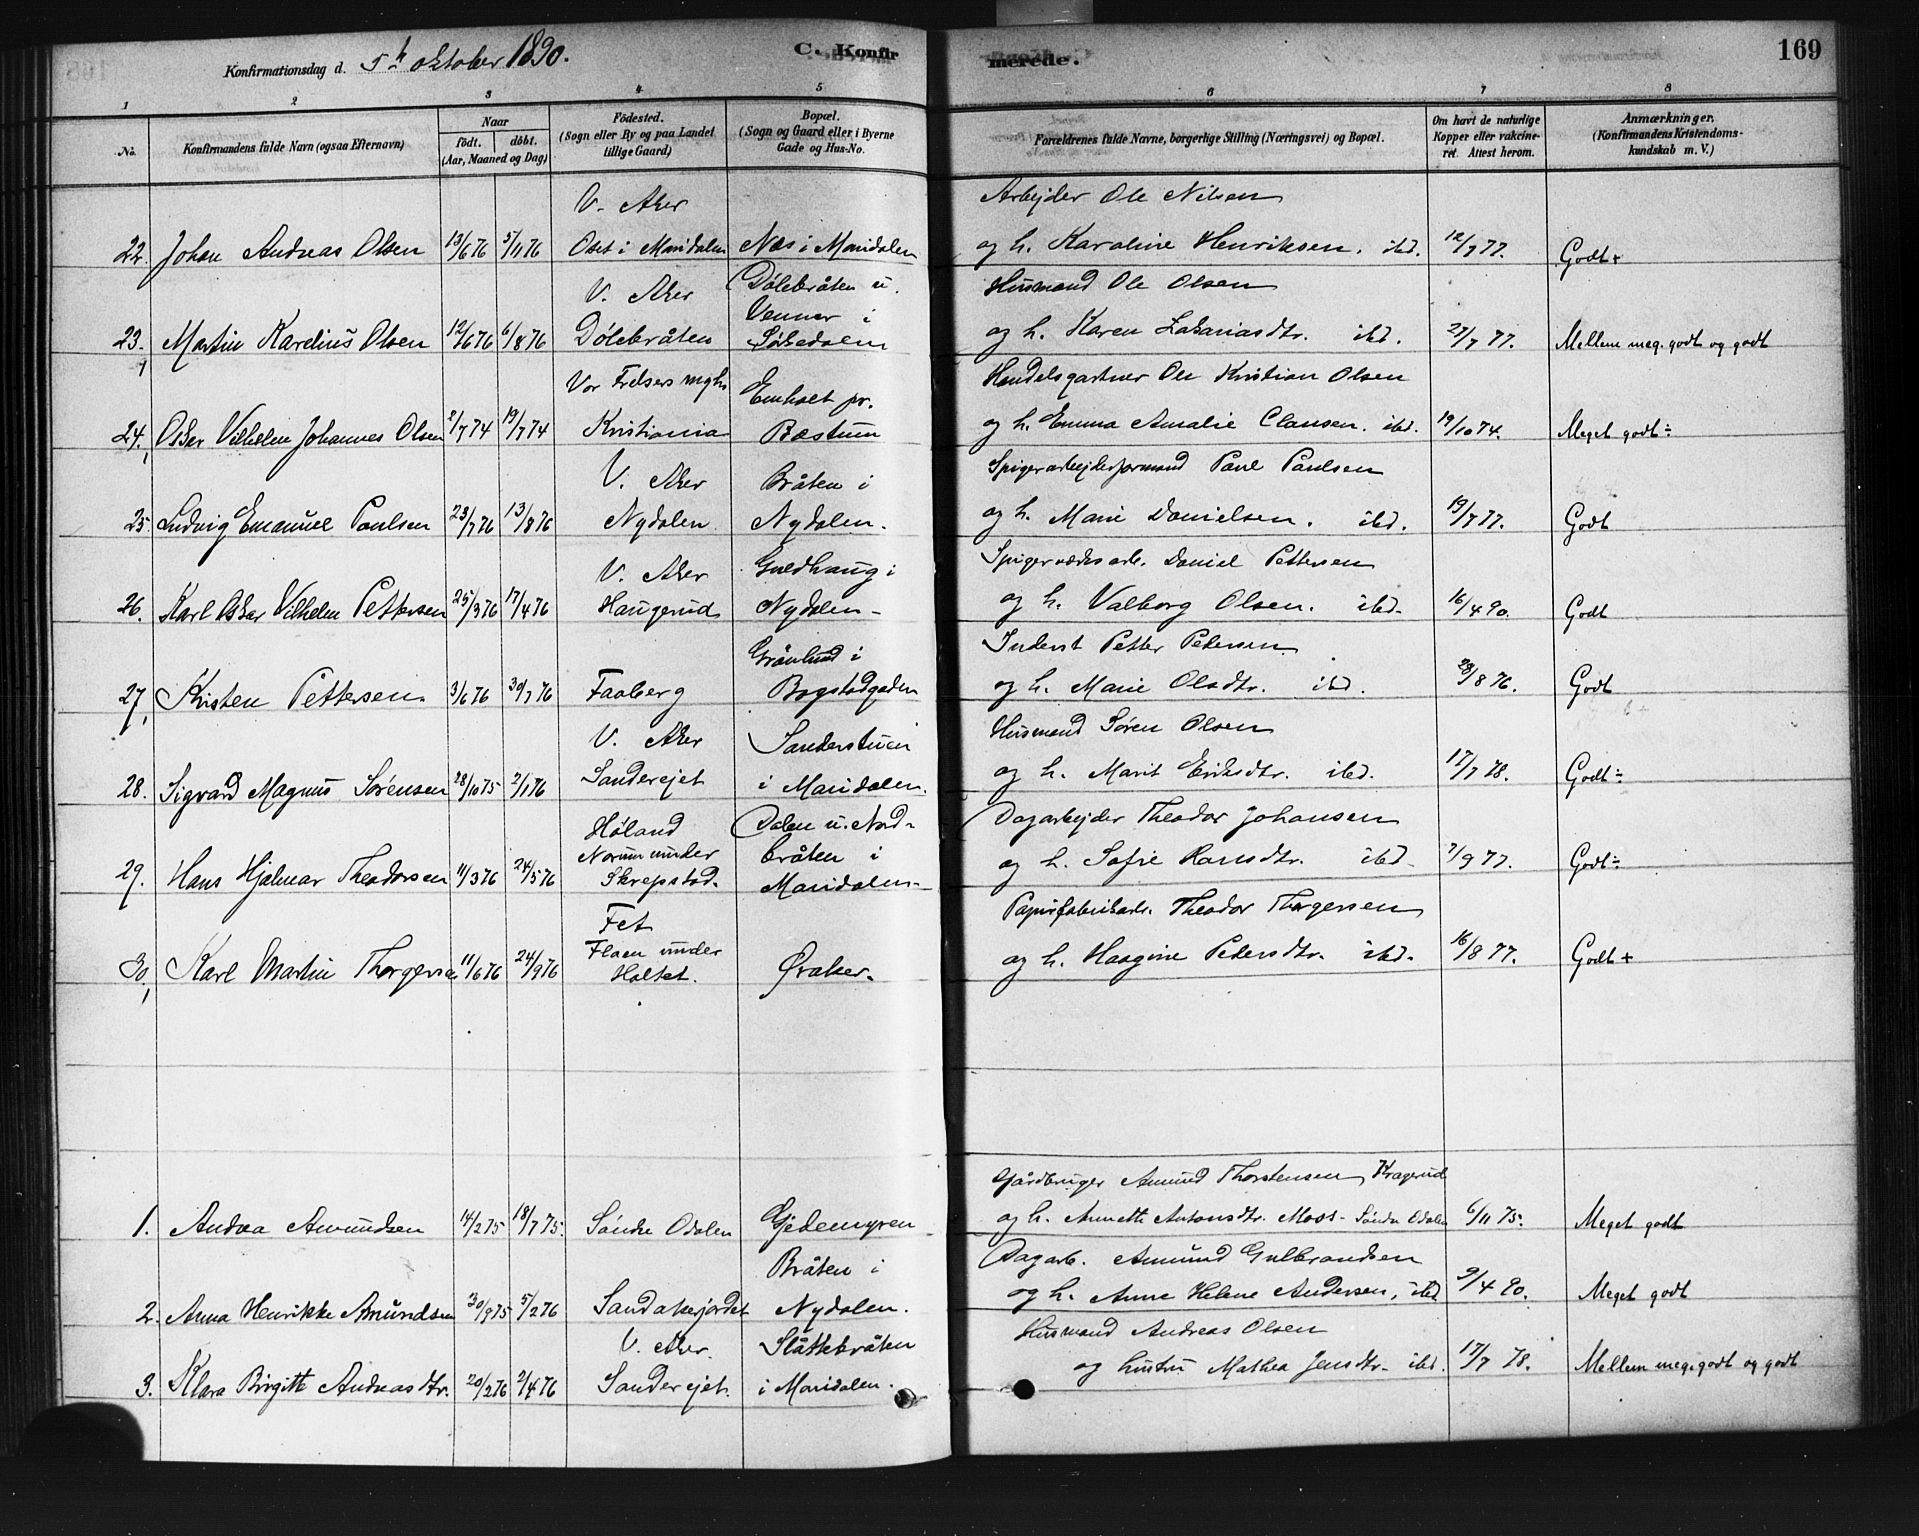 Konfirmationsdag d. 5t oktober 1890. C. Konfirmerede. 169
1 2 3 4 5 6 7 8
No. Konfirmandens fulde Navn (ogsaa Efternavn) Naar født. døbt. (Aar, Maaned og Dag) Fødested. (Sogn eller By og paa Landet tillige Gaard) Bopæl. (Sogn og Gaard eller i Byerne Gade og Hus-No. Forældrenes fulde Navne, borgerlige Stilling (Næringsvei) og Bopæl. Om havt de naturlige Kopper eller vakcineret. Attest herom. Anmærkninger. (Konfirmandens Kristendomskundskab m. V.)
V. Aker Arbejder Ole Nilsen
22. Johan Andreas Olsen 13/6 76 5/11 76 Oset i Maridalen Næs i Maridalen og h. Karoline Henriksen. ibd. 12/7 77. Godt+
V. Aker Dølebråten u. Husmand Ole Olsen
Venner i
23. Martin Karelius Olsen 12/6 76 6/8 76 Dølebråten Sørkedalen og h. Karen Zakariasdtr. ibd. 27/7 77. Mellem meg. godt og godt
Vor Frelsers mgh. Emholt pr. Handelsgartner Ole Kristian Olsen
24. Osker Vilhelm Johannes Olsen 2/7 74 19/7 74 Kristiania Bæstum og h. Emma Amalie Clausen. ibd. 19/10 74. Meget godt÷
V. Aker Bråten i Spigerarbejderformand Paul Paulsen
25. Ludvig Emanuel Paulsen 23/7 76 13/8 76 Nydalen. Nydalen. og h. Marie Danielsen. ibd. 19/7 77. Godt
V. Aker Guldhaug i Spigerværksarb. Daniel Pettersen
26. Karl Osker Vilhelm Pettersen 25/3 76 17/4 76 Haugerud Nydalen- og h. Valborg Olsen. ibd. 16/4 90. Godt
Grønlund i Inderst Petter Pedersen
27. Kristen Pettersen. 3/6 76 30/7 76 Faaberg Bogstadgaden og h. Marie Olsdtr. ibd. 28/8 76. Godt
V. Aker Sanderstuen Husmand Søren Olsen
28. Sigvard Magnus Sørensen 28/10 75 2/1 76 Sanderejet i Maridalen. og h. Marit Eriksdtr. ibd. 17/7 78. Godt÷
Høland Dalen u. Nord- Dagarbejder Theodor Johansen
Norum under bråten i
29. Hans Hjalmar Theodorsen 11/3 76 24/5 76 Skrepstad. Maridalen- og h. Sofie Hansdtr. ibd. 7/9 77. Godt÷
Fet Papirfabrikarb. Theodor Thorgersen
Flaen under
30. Karl Martin Thorgersen 11/6 76 24/9 76 Holtet. Øraker. og h. Haagine Pedersdtr. ibd. 16/8 77. Godt+
Gårdbruger Amund Thorstensen, Kragerud
1. Andrea Amundsen 14/2 75 18/7 75. Søndre Odalen Gjedemyren og h. Annette Antonsdtr. Moss- Søndre Odalen 6/11 75. Meget godt
Bråten i Dagarb. Amund Gulbrandsen
2. Anna Henrikke Amundsen 30/9 75 5/2 76 Sandakerjordet Nydalen. og h. Anne Helene Andersen, ibd 9/4 90. Meget godt
V. Aker. Slåttebråten Husmand Andreas Olsen
3. Klara Birgitte Andreasdtr. 20/2 76 2/4 76 Sanderejet. i Maridalen. og hustru Mathea Jensdtr- ibd. 17/7 78. Mellem meg. godt og godt